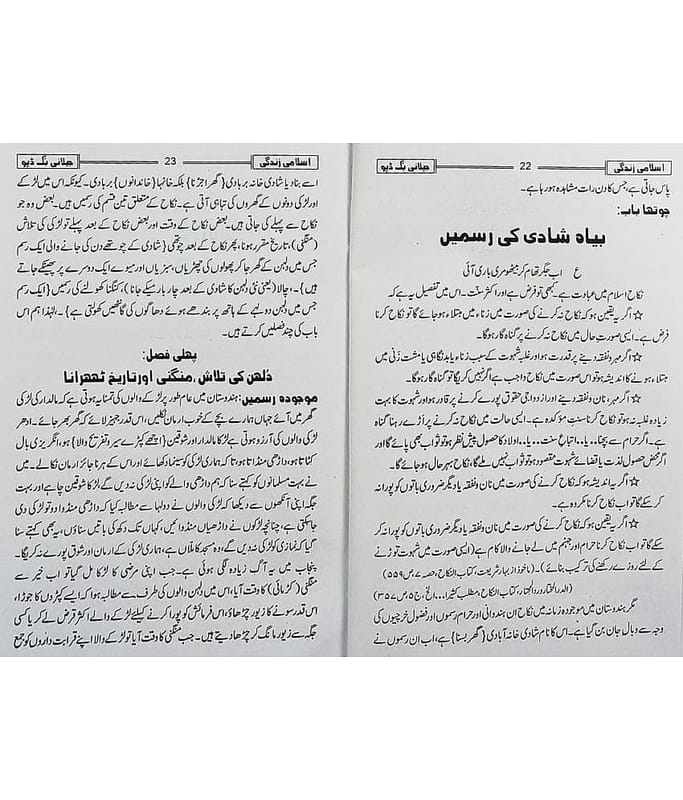 اسلامی زندگی 22 جیلانی بک ڈپو
پاس جاتی ہے، جس کا دن رات مشاہدہ ہو رہا ہے۔
چوتھا باب:
بیاہ شادی کی رسمیں
ع اب جگر تھام کر بیٹھو مری باری آئی
نکاح اسلام میں عبادت ہے۔ کبھی تو فرض ہے اور اکثر سنت۔ اس میں تفصیل یہ ہے کہ
☆ اگر یہ یقین ہو کہ نکاح نہ کرنے کی صورت میں زناء میں مبتلاء ہو جائے گا تو نکاح کرنا
فرض ہے۔ ایسی صورتِ حال میں نکاح نہ کرنے پر گناہ گار ہوگا۔
☆ اگر مہر و نفقہ دینے پر قدرت ہو اور غلبہ شہوت کے سبب زناء یا بدنگاہی یا مشت زنی میں
مبتلاء ہونے کا اندیشہ ہو تو اس صورت میں نکاح واجب ہے اگر نہیں کریگا تو گناہ گار ہوگا۔
☆ اگر مہر، نان و نفقہ دینے اور ازدواجی حقوق پورے کرنے پر قادر ہو اور شہوت کا بہت
زیادہ غلبہ نہ ہو تو نکاح کرنا سنتِ مؤکدہ ہے۔ ایسی حالت میں نکاح نہ کرنے پر اڑے رہنا گناہ
ہے۔ اگر حرام سے بچنا۔۔ یا۔۔ اتباعِ سنت۔۔ یا۔۔ اولاد کا حصول پیشِ نظر ہو تو ثواب بھی پائے گا اور
اگر محض حصولِ لذت یا قضائے شہوت مقصود ہو تو ثواب نہیں ملے گا، نکاح بہر حال ہو جائے گا۔
☆ اگر یہ اندیشہ ہو کہ نکاح کرنے کی صورت میں نان و نفقہ یا دیگر ضروری باتوں کو پورا نہ
کر سکے گا تو اب نکاح کرنا مکروہ ہے۔
☆ اگر یہ یقین ہو کہ نکاح کرنے کی صورت میں نان و نفقہ یا دیگر ضروری باتوں کو پورا نہ کر
سکے گا تو اب نکاح کرنا حرام اور جہنم میں لے جانے والا کام ہے (ایسی صورت میں شہوت توڑنے
کے لئے روزے رکھنے کی ترکیب بنائے)۔ (ماخوذ از بہار شریعت، کتاب النکاح، حصہ ۷، ص ۵۵۹)
(الدر المختار و رد المحتار، کتاب النکاح، مطلب کثیرا۔۔ الخ، ج ۵، ص ۳۵۷)
مگر ہندوستان میں موجودہ زمانہ میں نکاح ان ہندوانی اور حرام رسموں اور فضول خرچیوں کی
وجہ سے وبالِ جان بن گیا ہے۔ اس کا نام شادی خانہ آبادی {گھر بسنا} ہے، اب ان رسموں نے
اسلامی زندگی 23 جیلانی بک ڈپو
اسے بنا دیا شادی خانہ بربادی {گھر اجڑنا} بلکہ خانہا {خاندانوں} بربادی۔ کیونکہ اس میں لڑکے
اور لڑکی دونوں کے گھروں کی تباہی آتی ہے۔ نکاح کے متعلق تین قسم کی رسمیں ہیں۔ بعض وہ جو
نکاح سے پہلے کی جاتی ہیں۔ بعض نکاح کے وقت اور بعض نکاح کے بعد پہلے تو لڑکی کی تلاش
(منگنی)، تاریخ مقرر ہونا، پھر نکاح کے بعد چوتھی {شادی کے چوتھے دن کی جانے والی ایک رسم
جس میں دلہن کے گھر جا کر پھولوں کی چھڑیاں، سبزیاں اور میوے ایک دوسرے پر پھینکے جاتے
ہیں}۔، چالا (یعنی نئی دلہن کا شادی کے بعد چار بار میکے جانا)، کنگنا کھولنے کی رسمیں {ایک رسم
جس میں دولہے کے ہاتھ پر بندھے ہوئے دھاگوں کی گانٹھیں کھولتی ہے}۔ لہٰذا ہم اس
باب کی چند فصلیں کرتے ہیں۔
پہلی فصل:
دُلھن کی تلاش، منگنی اور تاریخ ٹھھرانا
موجودہ رسمیں: ہندوستان میں عام طور پر لڑکے والوں کی تمنا یہ ہوتی ہے کہ مالدار کی لڑکی
گھر میں آئے جہاں ہمارے بچے کے خوب ارمان نکلیں، اس قدر جہیز لائے کہ گھر بھر جائے۔ ادھر
لڑکی والوں کی آرزو ہوتی ہے لڑکا مالدار اور شوقین {اچھے کپڑے سیر و تفریح والا} ہو، انگریزی بال
کٹاتا ہو، داڑھی منڈاتا ہو، تا کہ ہماری لڑکی کو سینما دکھائے اور اس کے ہر ناجائز ارمان نکالے۔ میں
نے بہت مسلمانوں کو کہتے سنا کہ ہم داڑھی والے کو اپنی لڑکی نہ دیں گے لڑکا شوقین چاہیے اور بہت
جگہ اپنی آنکھوں سے دیکھا کہ لڑکی والوں نے دولہا سے مطالبہ کیا کہ داڑھی منڈوا دو تو لڑکی دی
جا سکتی ہے، چنانچہ لڑکوں نے داڑھیاں منڈوائیں، کہاں تک دکھ کی باتیں سناؤں، یہ بھی کہتے سنا
گیا کہ نمازی کو لڑکی نہ دیں گے، وہ مسجد کا ملاں ہے، ہماری لڑکی کے ارمان اور شوق پورے نہ کریگا۔
پنجاب میں یہ آگ زیادہ لگی ہوئی ہے۔ جب اپنی مرضی کا لڑکا مل گیا تو اب خیر سے
منگنی (کڑمائی) کا وقت آیا، اس میں دلہن والوں کی طرف سے مطالبہ ہوا کہ ایسے کپڑوں کا جوڑا،
اس قدر سونے کا زیور چڑھاؤ، اس فرمائش کو پورا کرنے کیلئے لڑکے والے اکثر قرض لے کر یا کسی
جگہ سے زیور مانگ کر چڑھا دیتے ہیں۔ جب منگنی کا وقت آیا تو لڑکے والا اپنے قرابت داروں کو جمع